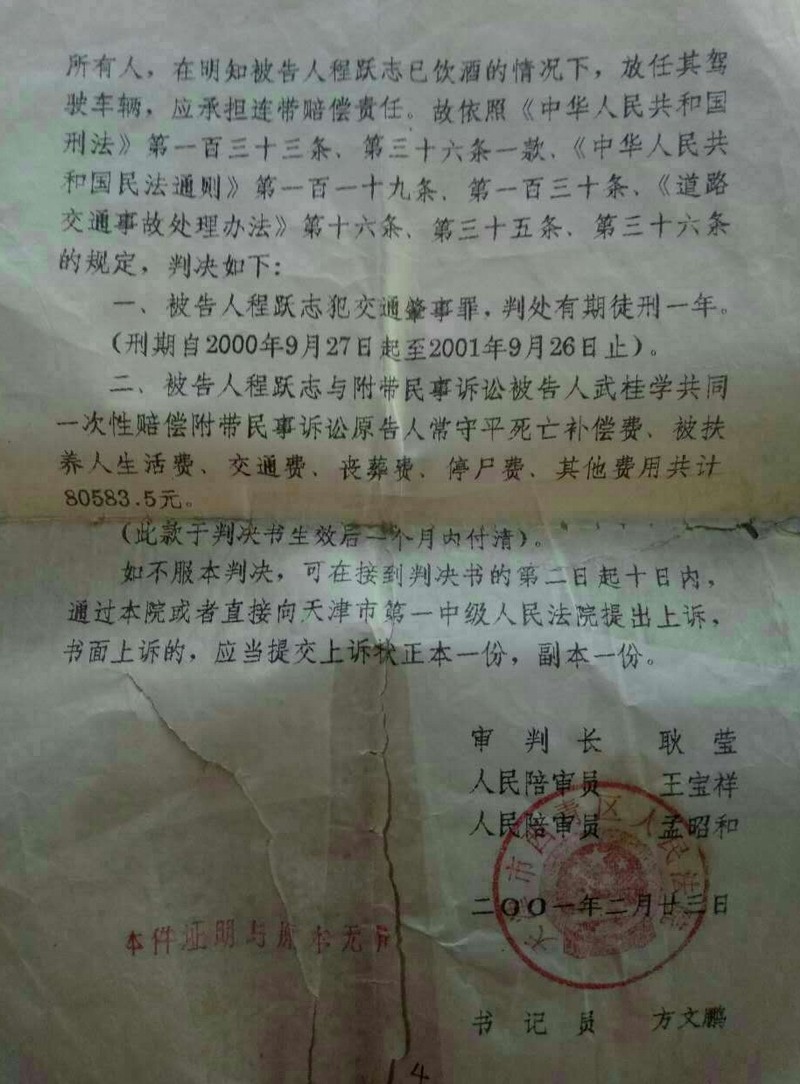 所有人，在明知被告人程跃志已饮酒的情况下，放任其驾
驶车辆，应承担连带赔偿责任。故依照《中华人民共和国
刑法》第一百三十三条、第三十六条一款、《中华人民共
和国民法通则》第一百一十九条、第一百三十条、《道路
交通事故处理办法》第十六条、第三十五条、第三十六条
的规定，判决如下：
一、被告人程跃志犯交通肇事罪，判处有期徒刑一年。
（刑期自2000年9月27日起至2001年9月26日止）。
二、被告人程跃志与附带民事诉讼被告人武桂学共同
一次性赔偿附带民事诉讼原告人常守平死亡补偿费、被扶
养人生活费、交通费、丧葬费、停尸费、其他费用共计
80583.5元。
（此款于判决书生效后一个月内付清）。
如不服本判决，可在接到判决书的第二日起十日内，
通过本院或者直接向天津市第一中级人民法院提出上诉，
书面上诉的，应当提交上诉状正本一份，副本一份。
审判长 耿莹
人民陪审员 王宝祥
人民陪审员 孟昭和
天津市西青区人民法院
二〇〇一年二月廿三日
本件证明与原本无异
书记员 方文鹏
4